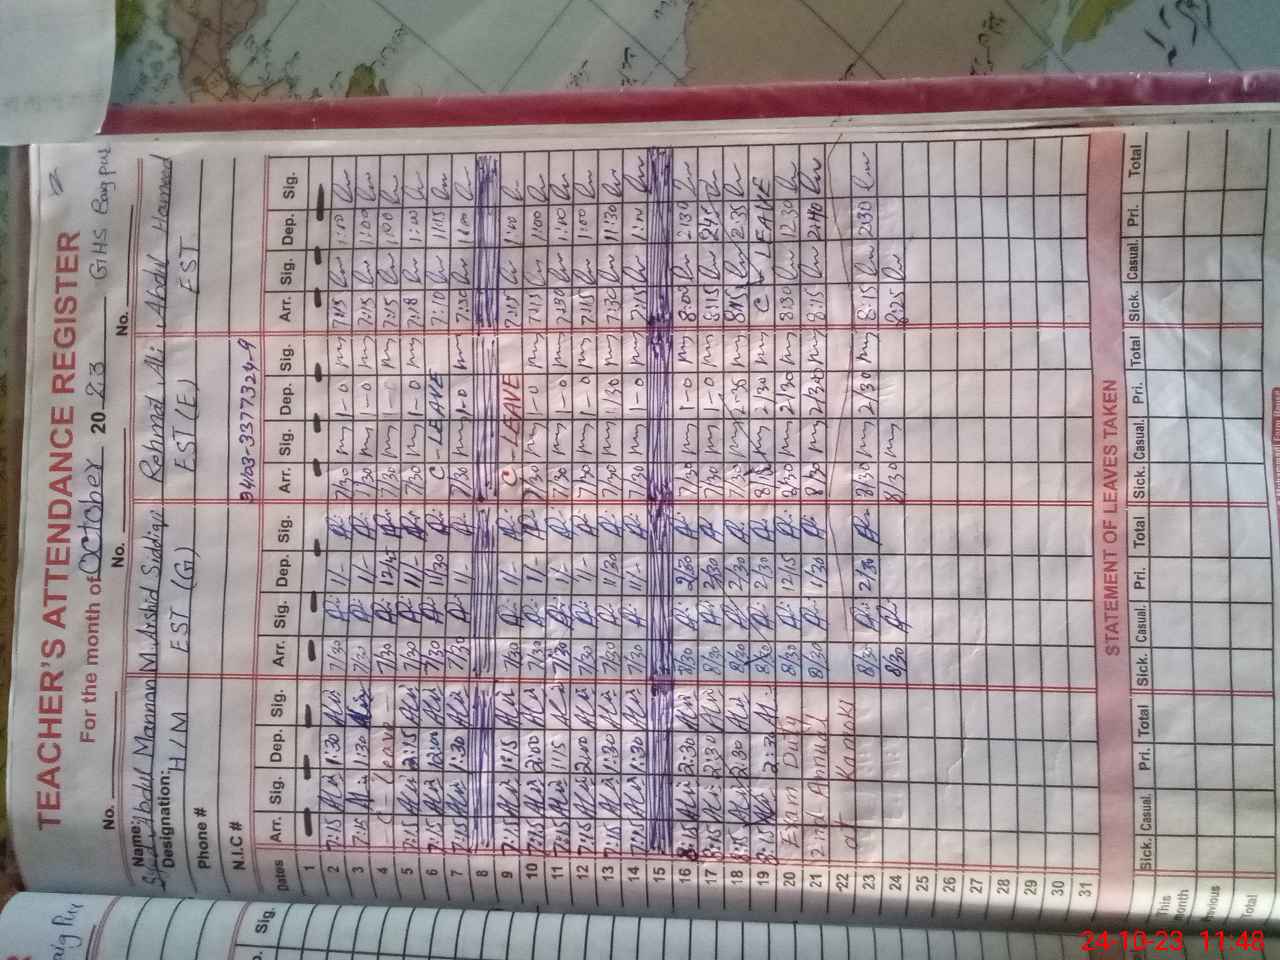 TEACHER'S ATTENDANCE REGISTER
For the month of October 20 23 GHS
No. No. No. No.
Name: Syed Abdul Mannan M. Arshid Siddiqi Rehmat Ali Abdul Hameed
Designation: H/M EST (G) EST (E) EST
Phone #
N.I.C # 3403-3377324-9
Dates Arr. Sig. Dep. Sig. Arr. Sig. Dep. Sig. Arr. Sig. Dep. Sig. Arr. Sig. Dep. Sig.
1
2 7:15 1:30 7/30 1/- 7/30 1-0 7:15 1:00
3 7:15 1:30 7/30 1/- 7/30 1-0 7:15 1:00
4 C - Leave - 7/30 12/45 7/30 1-0 7:15 1:00
5 7:15 2:15 7/30 11/- 7/30 1-0 7:18 1:00
6 7:15 12:00 7/30 11/30 C - LEAVE 7:10 11:15
7 7:15 1:30 7/30 1/- 7/30 1-0 7:30
8
9 7:15 1:15 7/30 1/- C - LEAVE 7:15 1:00
10 7:15 2:00 7/30 1/- 7/30 1-0 7:15 1:00
11 7:15 1:15 7/30 1/- 7/30 1-0 7:30 1:00
12 7:15 2:00 7/30 1/- 7/30 1-0 7:15 1:00
13 7:15 1:30 7/30 11/30 7/30 11/30 7:30 11:30
14 7:15 1:30 7/30 11/- 7/30 1-0 7:15 1:00
15
16 8:15 2:30 8/30 2/30 7/30 1-0 8:05 2:30
17 8:15 2:30 8/30 2/30 7/30 1-0 8:15 2:15
18 8:15 2:30 8/30 2/30 7/30 2-35 8:15 2:35
19 8:15 2:30 8/30 2/30 2/30 C - LEAVE
20 Exam Duty 8/30 12/15 8/30 2/30 8:30 12:30
21 2nd Annual 8/30 1/30 8/30 8:15 2:40
22 at
23 8/30 2/30 8/30 2/30 8:15 2:30
24 8/30 8/30 8:25
25
26
27
28
29
30
31
STATEMENT OF LEAVES TAKEN
Sick. Casual. Pri. Total Sick. Casual. Pri. Total Sick. Casual. Pri. Total Sick. Casual. Pri. Total
This month
Previous
Total
Sig.
24-10-23 11:48